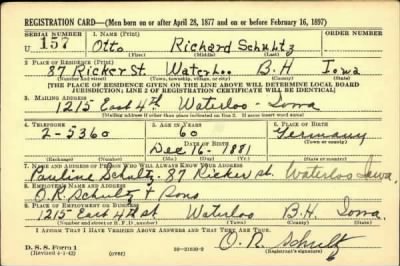 REGISTRATION CARD—(Men born on or after April 28, 1877 and on or before February 16, 1897)
SERIAL NUMBER 1. NAME (Print) ORDER NUMBER
U 157 Otto Richard Schultz
(First) (Middle) (Last)
2. PLACE OF RESIDENCE (Print)
87 Ricker St. Waterloo B.H Iowa
(Number and street) (Town, township, village, or city) (County) (State)
[THE PLACE OF RESIDENCE GIVEN ON THE LINE ABOVE WILL DETERMINE LOCAL BOARD
JURISDICTION; LINE 2 OF REGISTRATION CERTIFICATE WILL BE IDENTICAL]
3. MAILING ADDRESS
1215 East 4th Waterloo - Iowa
[Mailing address if other than place indicated on line 2. If same insert word same]
4. TELEPHONE 5. AGE IN YEARS 6. PLACE OF BIRTH
2-5360 60 Germany
DATE OF BIRTH (Town or county)
Dec 16 - 1881
(Exchange) (Number) (Mo.) (Day) (Yr.) (State or country)
7. NAME AND ADDRESS OF PERSON WHO WILL ALWAYS KNOW YOUR ADDRESS
Pauline Schultz - 87 Ricker st. Waterloo Iowa.
8. EMPLOYER'S NAME AND ADDRESS
O.R. Schultz & Sons
9. PLACE OF EMPLOYMENT OR BUSINESS
1215 East 4th st Waterloo B.H. Iowa.
(Number and street or R. F. D. number) (Town) (County) (State)
I AFFIRM THAT I HAVE VERIFIED ABOVE ANSWERS AND THAT THEY ARE TRUE.
O. R. Schultz
D. S. S. Form 1
(Revised 4-1-42) (over) (Registrant's signature)